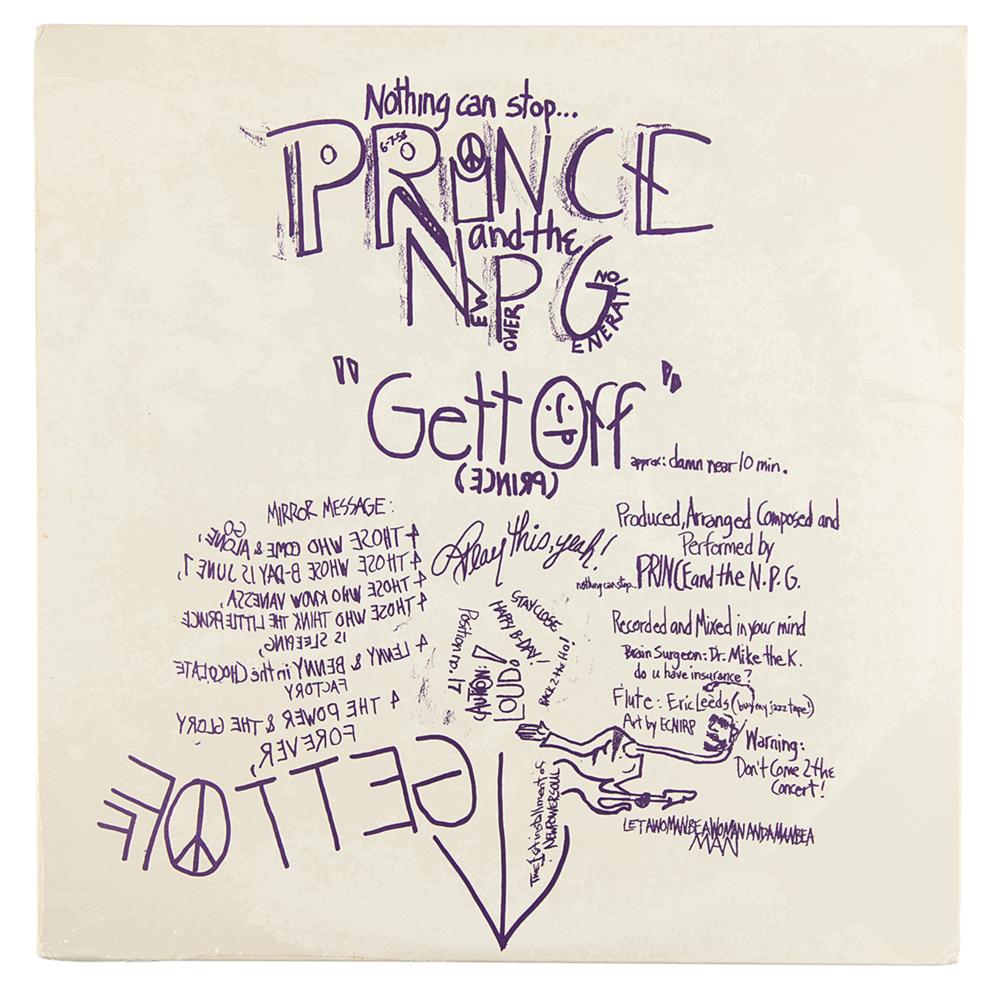 Nothing can stop...
PRINCE
6-7-58
and the
NPG
NEW POWER GENERATION
"Gett Off"
approx: damn near 10 min.
(PRINCE)
MIRROR MESSAGE:
4 THOSE WHO COME & GO ALONE,
4 THOSE WHOSE B-DAY IS JUNE 7,
4 THOSE WHO KNOW VANESSA,
4 THOSE WHO THINK THE LITTLE PRINCE
IS SLEEPING,
4 LENNY & BENNY in the CHOCOLATE
FACTORY
4 THE POWER & THE GLORY
FOREVER,
GETT OFF
Play this, yeah!
STAY CLOSE
HAPPY B-DAY!
BACK 2 the
Position or 17
CAUTION:
LOUD!
Produced, Arranged Composed and
Performed by
nothing can stop... PRINCE and the N.P.G.
Recorded and Mixed in your mind
Brain Surgeon: Dr. Mike the K.
do u have insurance?
Flute: Eric Leeds (buy my jazz tape!)
Art by ECNIRP
Warning:
Don't Come 2 the
Concert!
The 1st installment of
NEW POWER SOUL
LET A WOMAN BE A WOMAN AND A MAN BE A
MAN